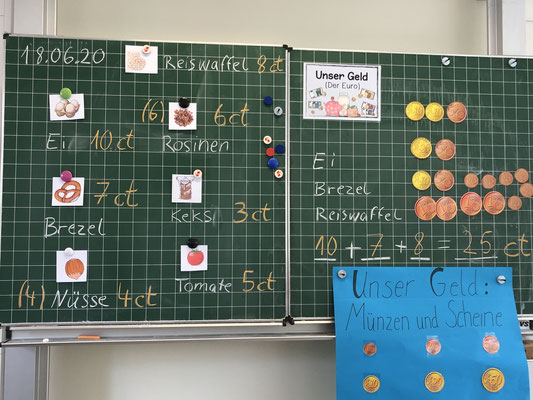 18.06.20
Reiswaffel 8ct
Ei 10ct
(6) 6ct
Rosinen
7ct
Brezel
Keks 3ct
(4) Nüsse 4ct
Tomate 5ct
Unser Geld
(Der Euro)
Ei
Brezel
Reiswaffel
10 + 7 + 8 = 25 ct
Unser Geld:
Münzen und Scheine